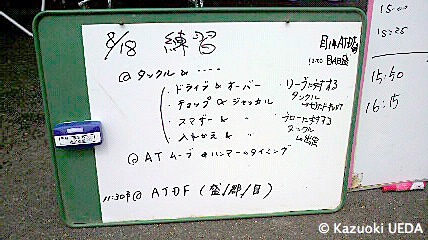 8/18 練習
目黒ATDF
12:30 BBQ
@ タックル & ‥‥
・ドライブ & オーバー
・チョップ & ジャッカル
・スマザー & 〃
・入れかえ & 〃
リーブに対する
タックル
フローに対する
タックル
@ AT ムーブ & ハンマーのタイミング
11:30〜 @ ATDF (釜/郡/目)
15:00
15:25
15:50
16:15
© Kazuoki UEDA